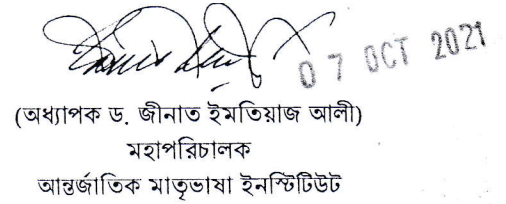 07 OCT 2021
(অধ্যাপক ড. জীনাত ইমতিয়াজ আলী)
মহাপরিচালক
আন্তর্জাতিক মাতৃভাষা ইনস্টিটিউট